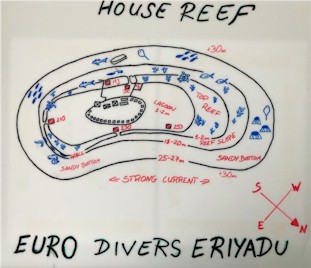 HOUSE REEF
+30m
LAGOON
1-2m
TOP
REEF
210
250
5-2m
REEF SLOPE
18-20m
WALL
SANDY BOTTOM
25-27m
SANDY BOTTOM
+30m
STRONG CURRENT
S W
E N
EURO DIVERS ERIYADU